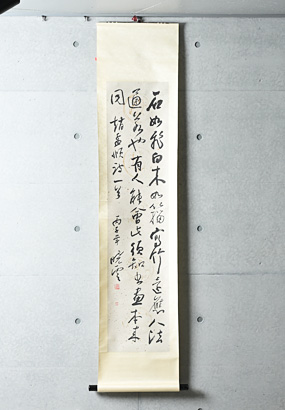 石如飛白木如籀寫竹還應八法
通若也有人能會此須知書畫本來
同 趙孟頫詩一首 丙子年